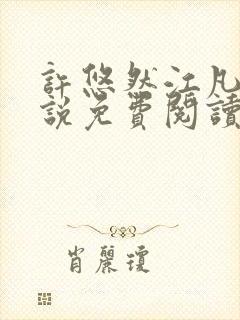 許悠然江凡
說免費閱讀
肖麗瓊